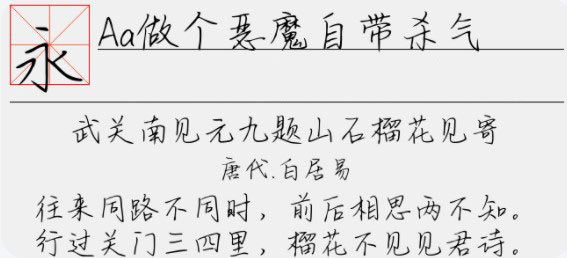 永
Aa做个恶魔自带杀气
武关南见元九题山石榴花见寄
唐代.白居易
往来同路不同时，前后相思两不知。
行过关门三四里，榴花不见见君诗。